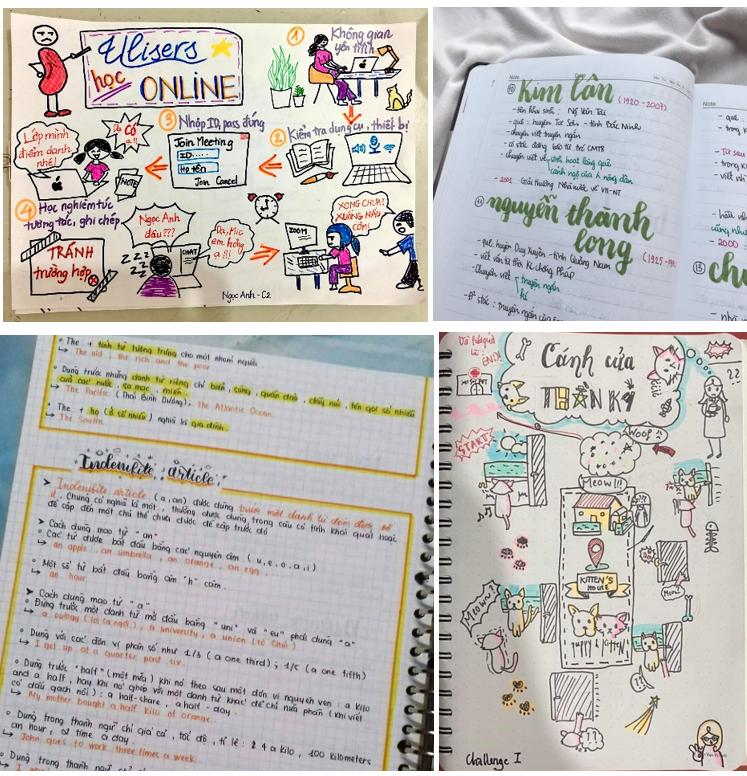 Ulisers
học ONLINE
1 Không gian
yên tĩnh
2 Kiểm tra dụng cụ, thiết bị
3 Nhập ID, pass đúng
Join Meeting
ID....
Họ tên
Join Cancel
Lớp mình
điểm danh
nhé!
Dạ CÓ
ạ!!
NOTE
4 Học nghiêm túc
tương tác, ghi chép
TRÁNH
trường hợp
Ngọc Anh
đâu???
ZZZ
CHAT
Dạ, Mic
em hỏng
ạ!!!
ZOOM
XONG CHƯA?
XUỐNG NẤU
CƠM!
Ngọc Anh - C2
Note
10 Kim Lân (1920 - 2007)
- tên khai sinh: Ng Văn Tài
- quê: huyện Từ Sơn - tỉnh Bắc Ninh
- chuyên viết truyện ngắn
- chuyên viết về sinh hoạt làng quê
cảnh ngộ của nông dân
- 2001 Giải thưởng Nhà nước về VH-NT
11 nguyễn thành
long (1925 -
- quê: huyện Duy Xuyên - tỉnh Quảng Nam
- viết văn từ thời K/chống Pháp
- Chuyên viết truyện ngắn
kí
Note
- quê
Từ sau
- trong k
- viết nh
- 2000
13 ch
The + tính từ tượng trưng cho một nhóm người
The old; the rich and the poor
Dùng trước những danh từ riêng chỉ biển, sông, quần đảo, dãy núi, tên gọi số nhiều
của các nước, sa mạc, miền
The Pacific (Thái Bình Dương), The Atlantic Ocean
The + họ (ở số nhiều) nghĩa là gia đình
The Smiths
Indefinite article
Indefinite article (a, an) được dùng trước một danh từ đếm được số
ít. Chúng có nghĩa là một, thường được dùng trong câu có tính khái quát hoặc
đề cập đến một chủ thể chưa được đề cập trước đó
Cách dùng mạo từ "an"
Các từ được bắt đầu bằng các nguyên âm (u, e, o, a, i)
an apple, an umbrella, an orange, an egg...
Một số từ bắt đầu bằng âm "h" câm
an hour
Cách dùng mạo từ "a"
Đứng trước một danh từ mở đầu bằng "uni" và "eu" phải dùng "a"
a university, a union (tổ chức)
Dùng với các đơn vị phân số như 1/3 (a one third); 1/5 (a one fifth)
I get up at a quarter past six
Dùng trước "half" (một nửa) khi nó theo sau một đơn vị nguyên vẹn: a kilo
and a half, hay khi nó ghép với một danh từ khác để chỉ nửa phần (khi viết
có dấu gạch nối): a half-share, a half-day
My mother bought a half kilo of orange.
Dùng trong thành ngữ chỉ giá cả, tốc độ, tỉ lệ: $ 4 a kilo, 100 kilometers
an hour, 2 time a day
John goes to work three times a week.
Dùng trong thành ngữ chỉ
Cánh cửa
THẦN KỲ
END!
START!
Woof
Meow!!!
KITTEN'S
HOUSE
puppy & kitten
Meoww
Meow!
??
Challenge 1